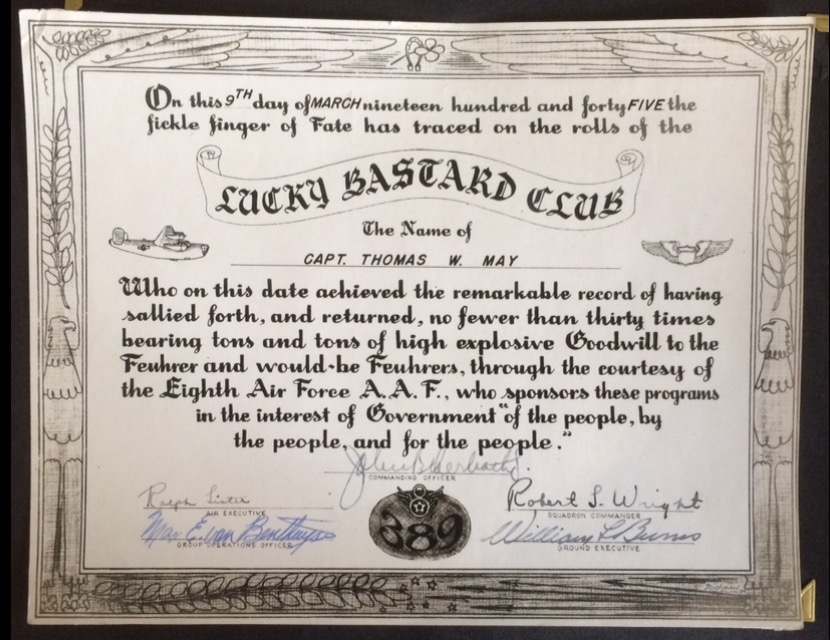 On this 9TH day of MARCH nineteen hundred and forty FIVE the
fickle finger of Fate has traced on the rolls of the
LUCKY BASTARD CLUB
The Name of
CAPT. THOMAS W. MAY
Who on this date achieved the remarkable record of having
sallied forth, and returned, no fewer than thirty times
bearing tons and tons of high explosive Goodwill to the
Feuhrer and would-be Feuhrers, through the courtesy of
the Eighth Air Force A.A.F., who sponsors these programs
in the interest of Government "of the people, by
the people, and for the people."
COMMANDING OFFICER
Ralph
AIR EXECUTIVE
Robert S. Wright
SQUADRON COMMANDER
389
GROUP OPERATIONS OFFICER
William Burns
GROUND EXECUTIVE